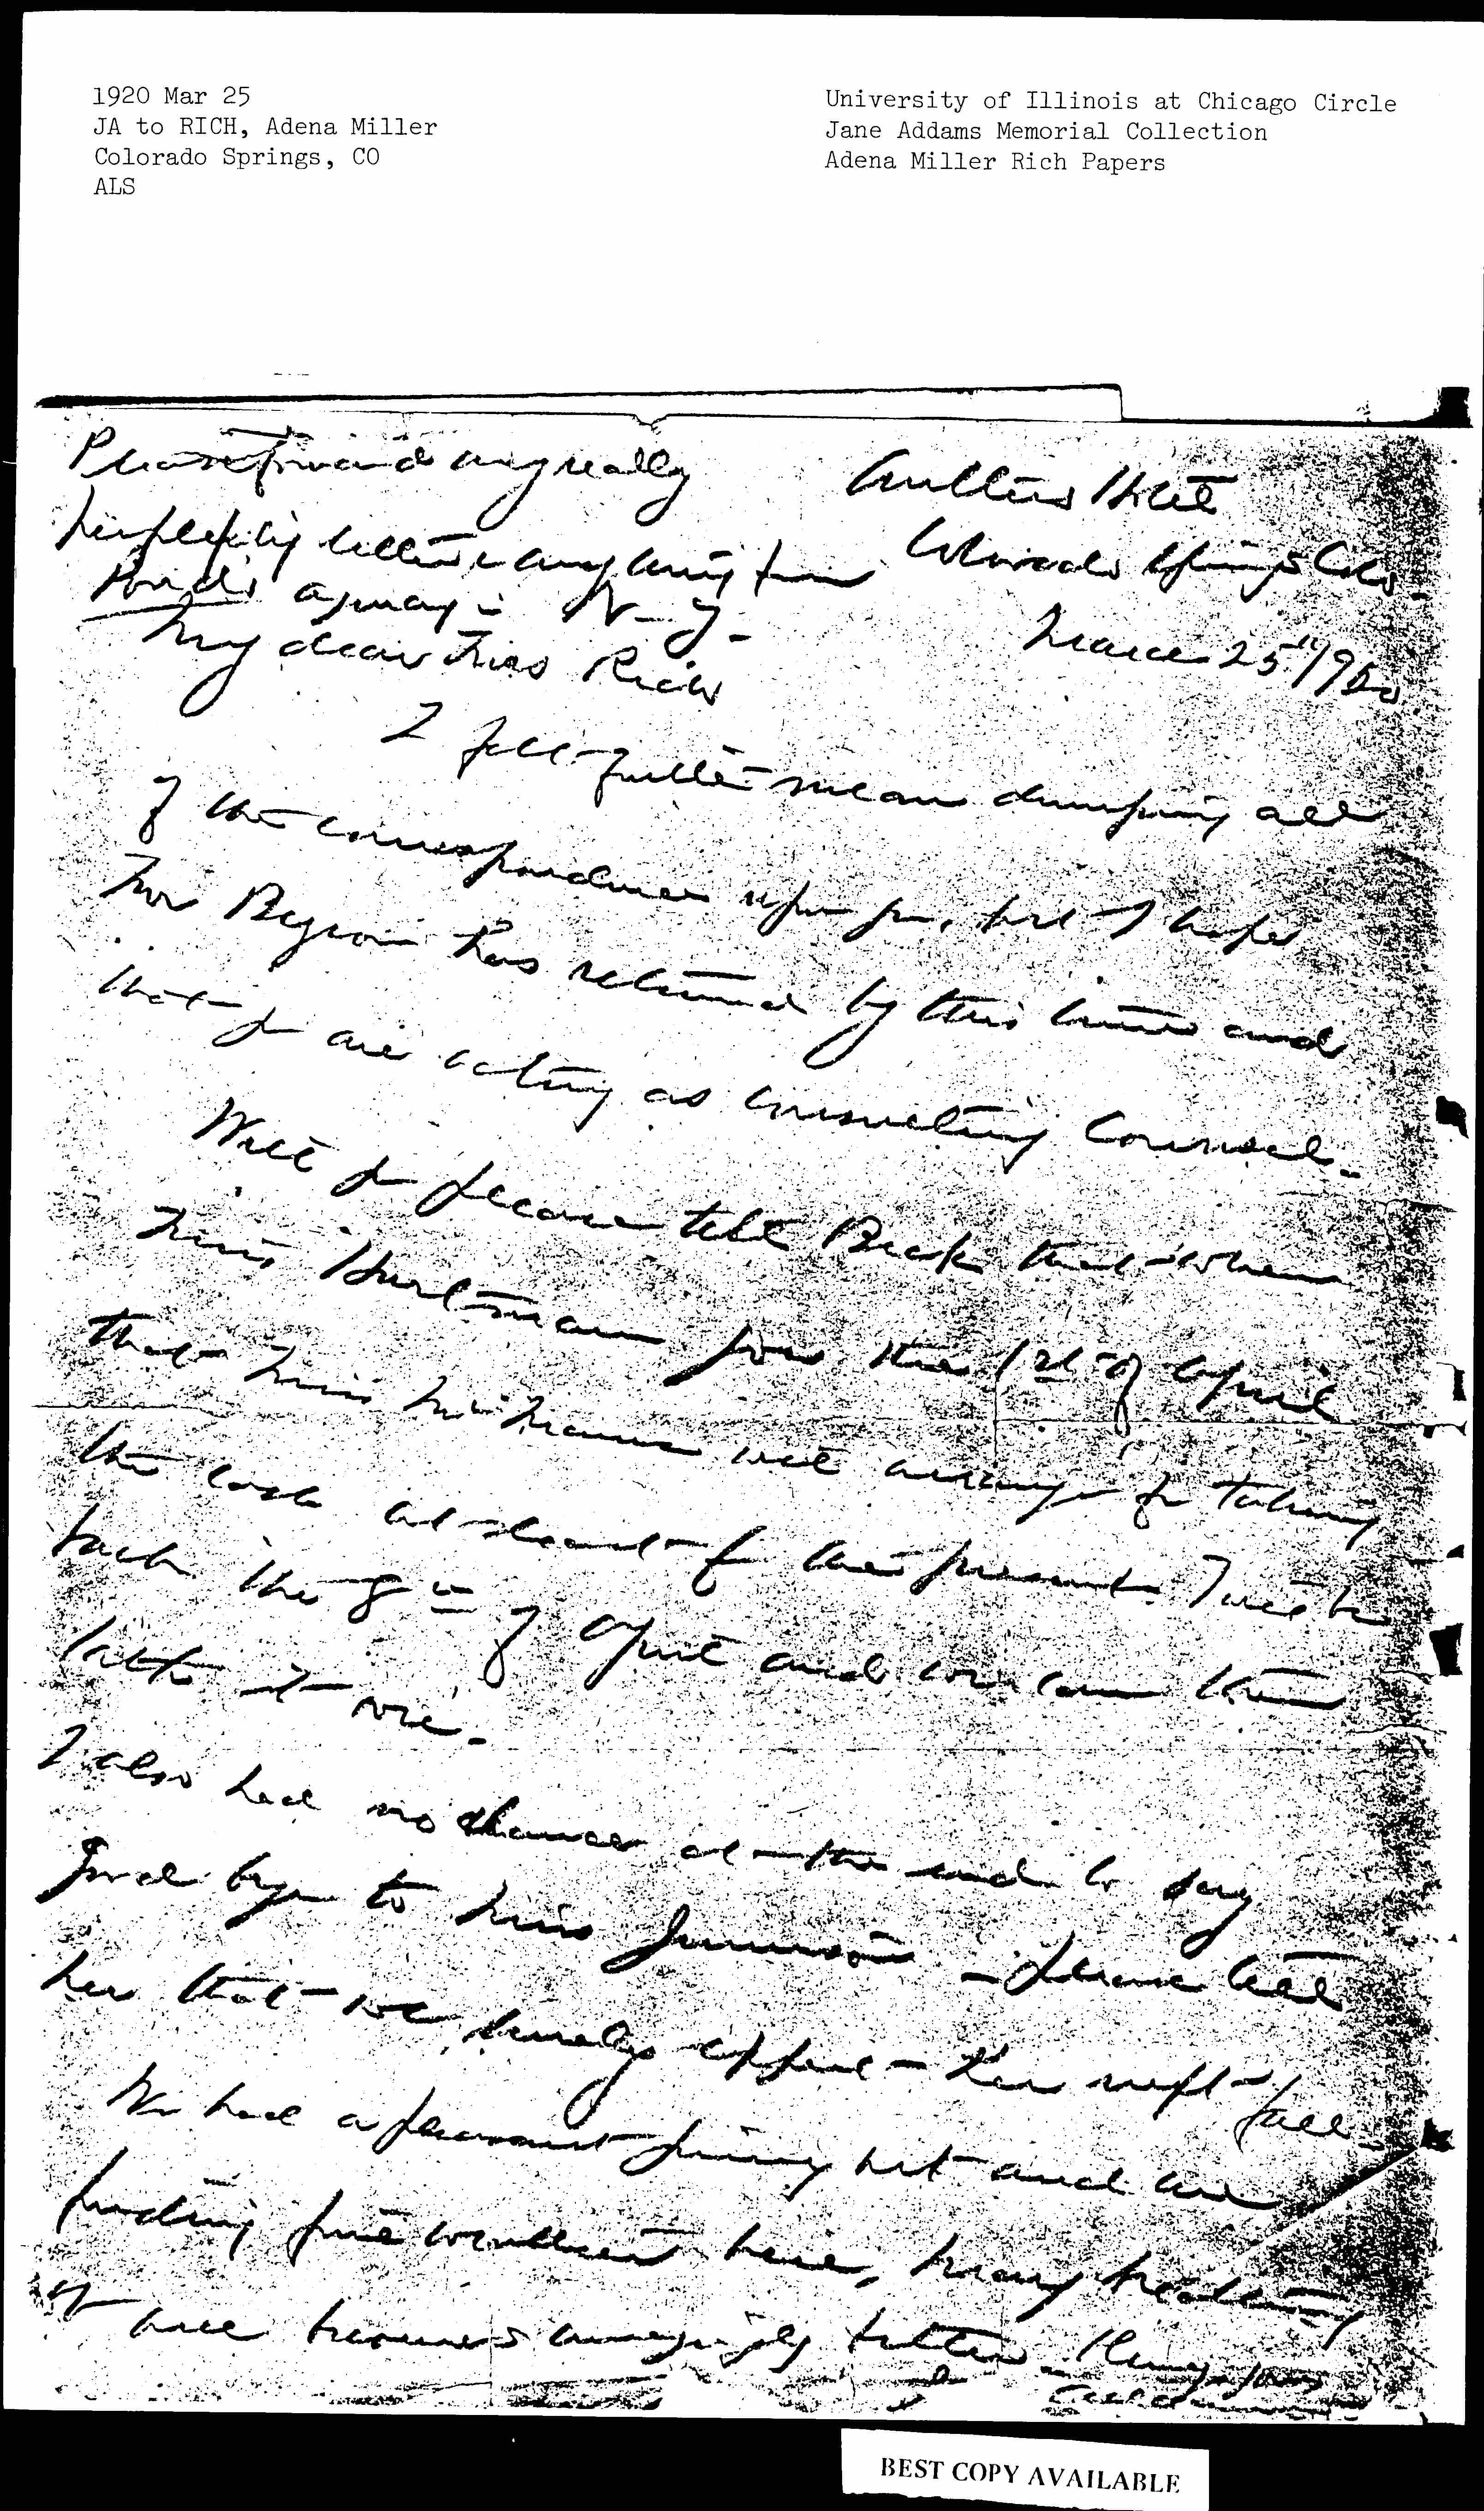 1920 Mar 25
JA to RICH, Adena Miller
Colorado Springs, CO
ALS
University of Illinois at Chicago Circle
Jane Addams Memorial Collection
Adena Miller Rich Papers
Please forward any really
perplexing letters & anything from
Pond's agency in N-Y-
Antlers Hotel
Colorado Springs Colo
March 25" 1920
My dear Mrs Rich
I feel quite mean dumping all
of the correspondence upon you, but I hope
Mrs Byron has returned by this time and
that you are acting as consulting counsel-
Will you please tell that when
Miss goes the 1st of April
that Miss will arrange for taking
the cash at for the present. I will be
back the 8" of April and we can then
talk it over-
I also had no chance at the end to say
Good bye to Miss - please tell
her that we surely expect her next fall-
We had a pleasant journey out and are
finding fine weather here,
of
BEST COPY AVAILABLE